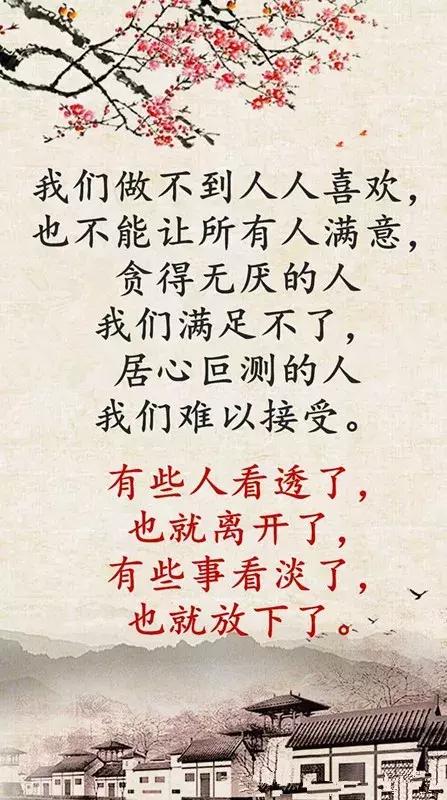 我们做不到人人喜欢，
也不能让所有人满意，
贪得无厌的人
我们满足不了，
居心叵测的人
我们难以接受。
有些人看透了，
也就离开了，
有些事看淡了，
也就放下了。